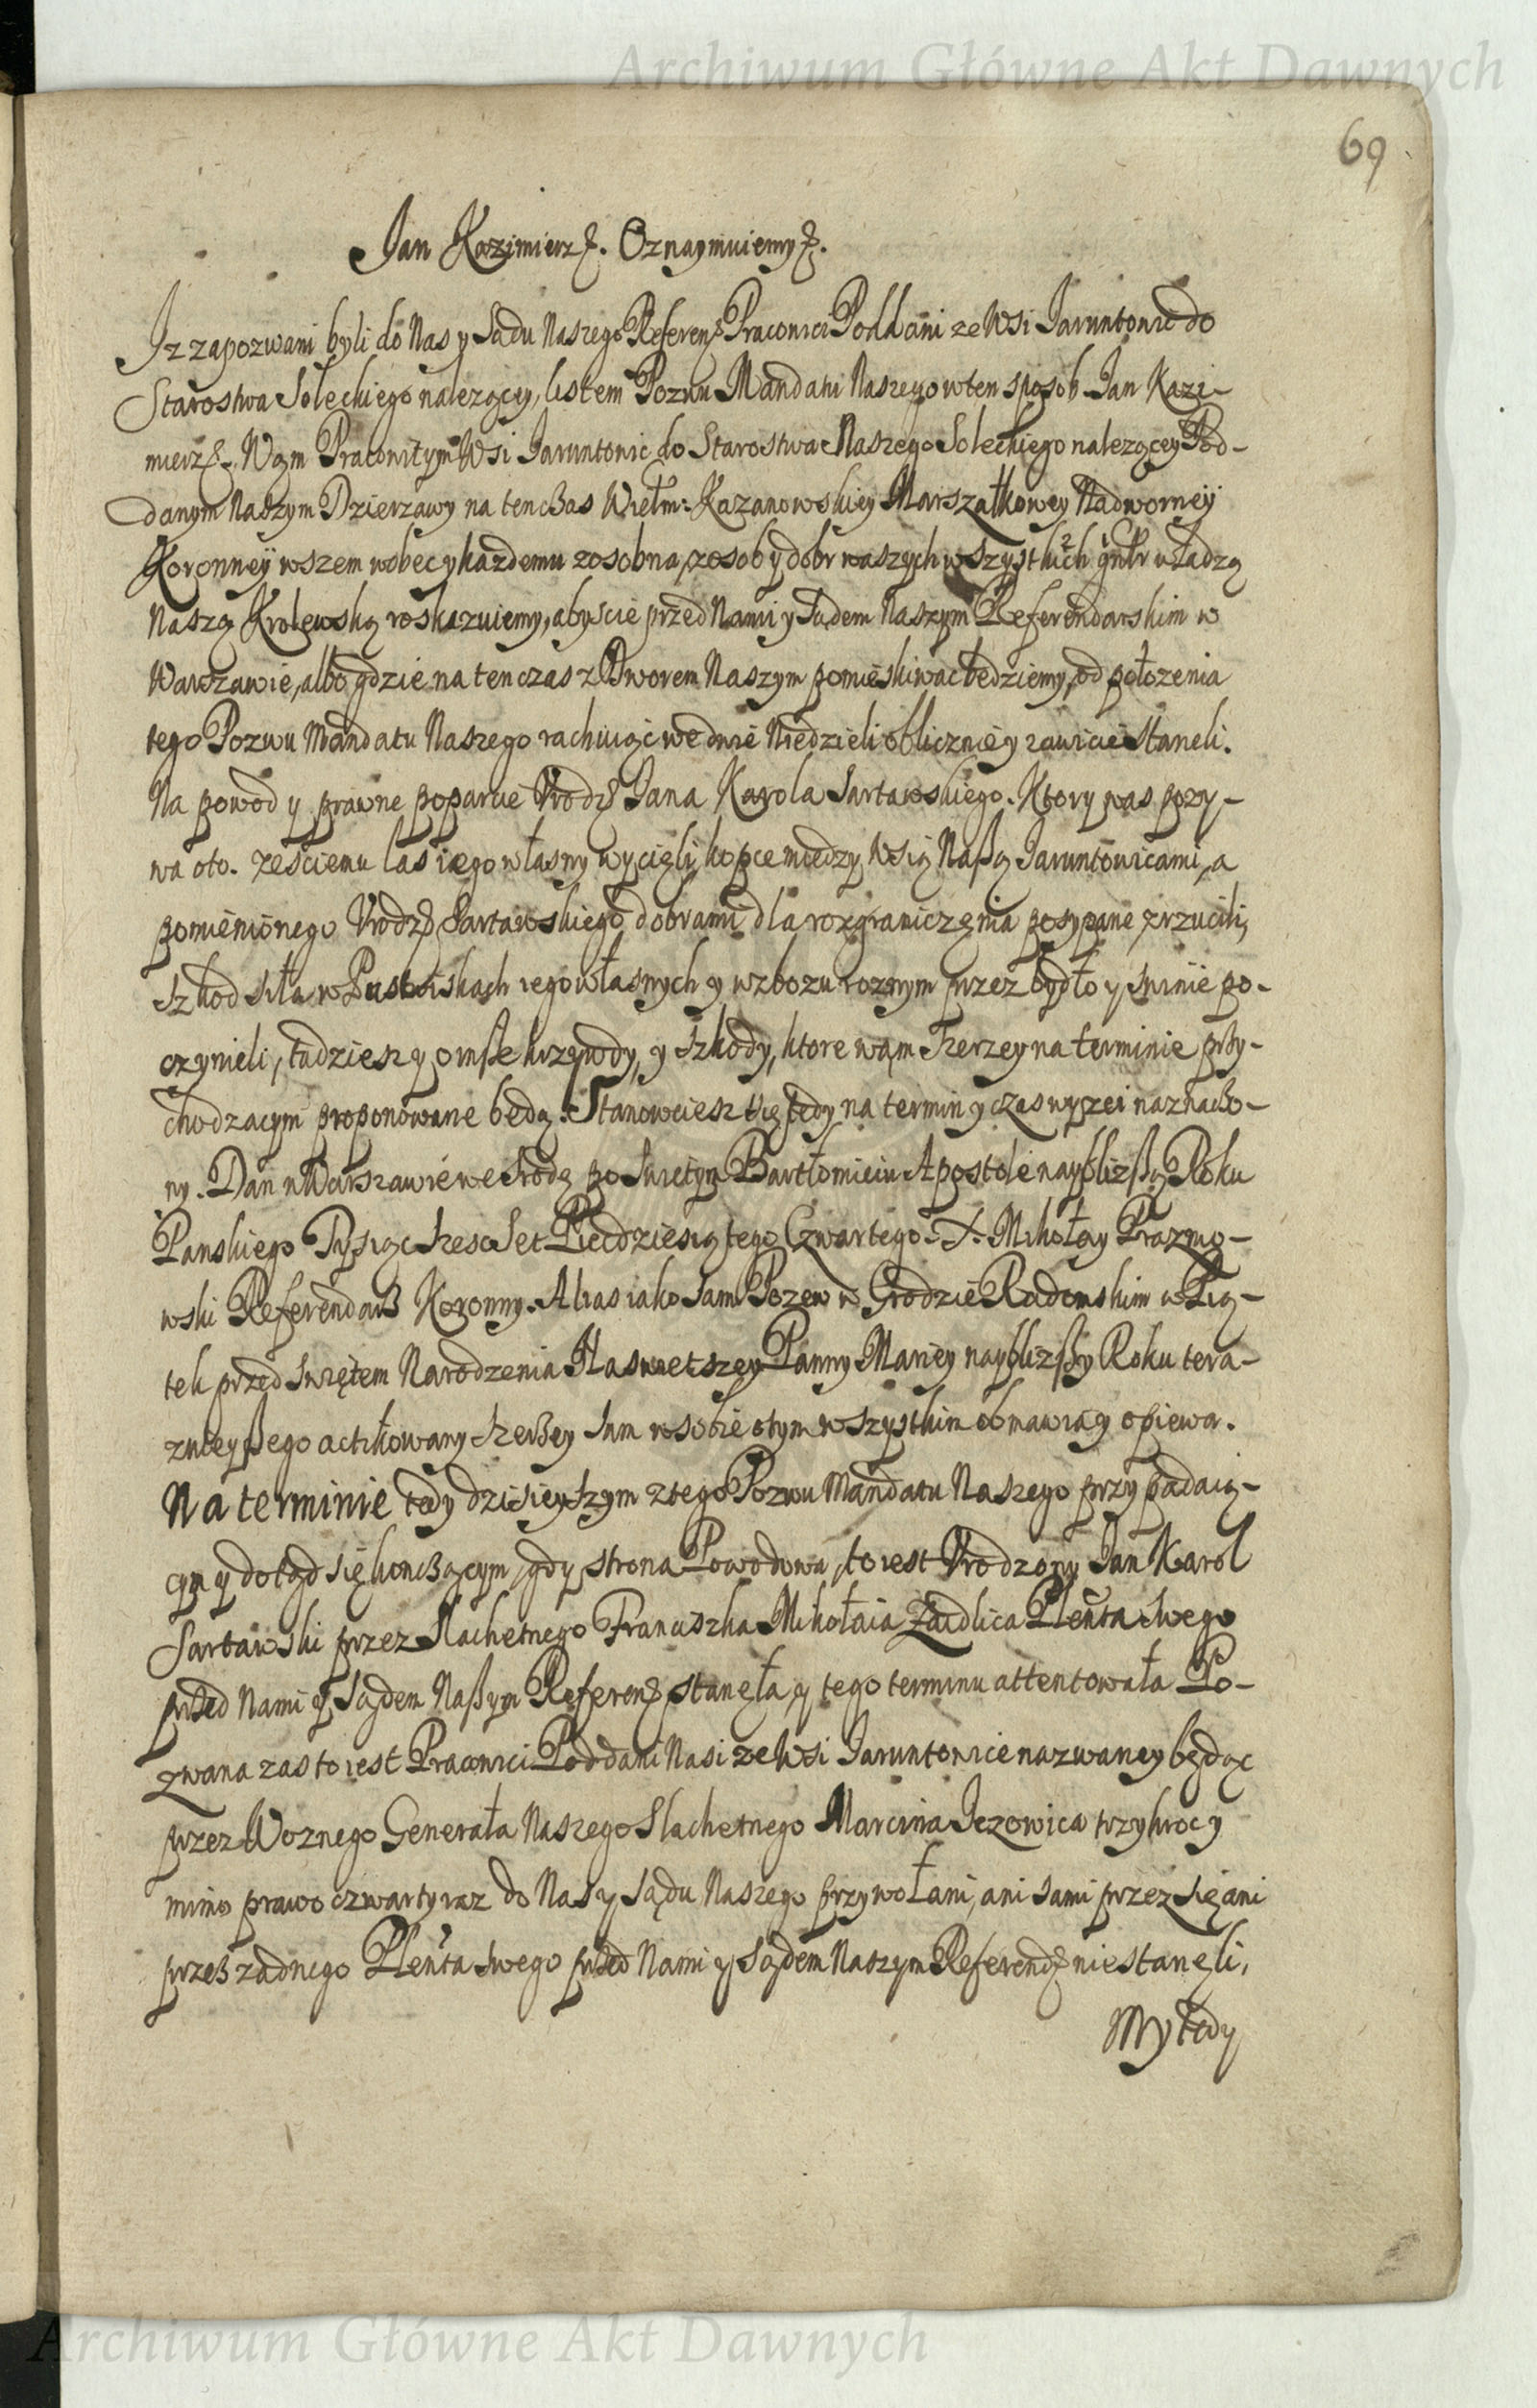 Archiwum Główne Akt Dawnych
69
Jan Kazimierz. Oznaymuiemy.
Iz zapozwani byli do Nas y Sądu Naszego Referen. Pracowici Poddani ze Wsi Jaruntowic do
Starostwa Soleckiego nalezącey, listem Pozwu Mandatu Naszego w ten sposob Jan Kazi-
mierz. Wąm Pracowitym Wsi Jaruntowic do Starostwa Naszego Soleckiego nalezącey Pod-
danym Naszym Dzierzawy na tenczas Wielm: Kazanowskiey Marszałkowey Nadworneÿ
Koronneÿ wszem wobec y kazdemu zosobna, z osob y dobr waszych wszystkich gnłr władzą
Naszą Krolewską roskazuiemy, abyscie przed Nami y Sądem Naszym Referendarskim w
Warszawie, albo gdzie na ten czas z Dworem Naszym pomieskiwac będziemy, od położenia
tego Pozwu Mandatu Naszego rachuiąc we dwie Niedzieli oblicznie y zawicie staneli.
Na powod y prawne poparcie Vrodz Jana Karola Sartawskiego. Ktory was pozy-
wa oto. zesciemu las iego własny wycięli, kopce między Wsią Naßą Jaruntowicami, a
pomienionego Vrodz Sartawskiego dobrami dla rozgraniczęnia posypane, zrzucili,
szkod siła w Pastwiskach iego własnych y w zbozu roznym przez bydło y swinie po-
czynieli, tudziesz y o insze krzywdy, y szkody, ktore wąm szerzey na terminie przy-
chodzacym proponowane będą. Stanowciesz się tedy na termin y czas wyzei naznaczo-
ny. Dan w Warszawie we Srodę po Swiętym Bartłomieiu Apostole naybliższą Roku
Panskiego Tysiąc Szescset Piecdziesiątego Czwartego. X. Mikołay Prazmo-
wski Referendarz Koronny. A braz iako sam Pozew w Grodzie Radomskim w Pią-
tek przed Swiętem Narodzenia Naswietszey Panny Mariey naybliższy Roku tera-
znieyßego actikowany szerzey sam w sobie o tym wszystkim obmawia y opiewa.
Na terminie tedy dzisieyszym z tego Pozwu Mandatu Naszego przypadaią-
cym y dotąd się kończącym, gdy strona Powodowa, to iest Vrodzony Jan Karol
Sartawski przez Slachetnego Franciszka Mikołaia Zaidlica Plenta swego
przed Nami y Sądem Naßym Referen. stanęła, y tego terminu attentowała Po-
zwana zas to iest Pracowici Poddani Nasi ze Wsi Jaruntowice nazwaney będąc
przez Woznego Generała Naszego Slachetnego Marcina Jezowica trzykroc y
mimo prawo czwarty raz do Nas y Sądu Naszego przywołani, ani sami przez się ani
przez zadnego Plenta swego przed Nami y Sądem Naszym Referend. nie stanęli,
My tedy
Archiwum Główne Akt Dawnych